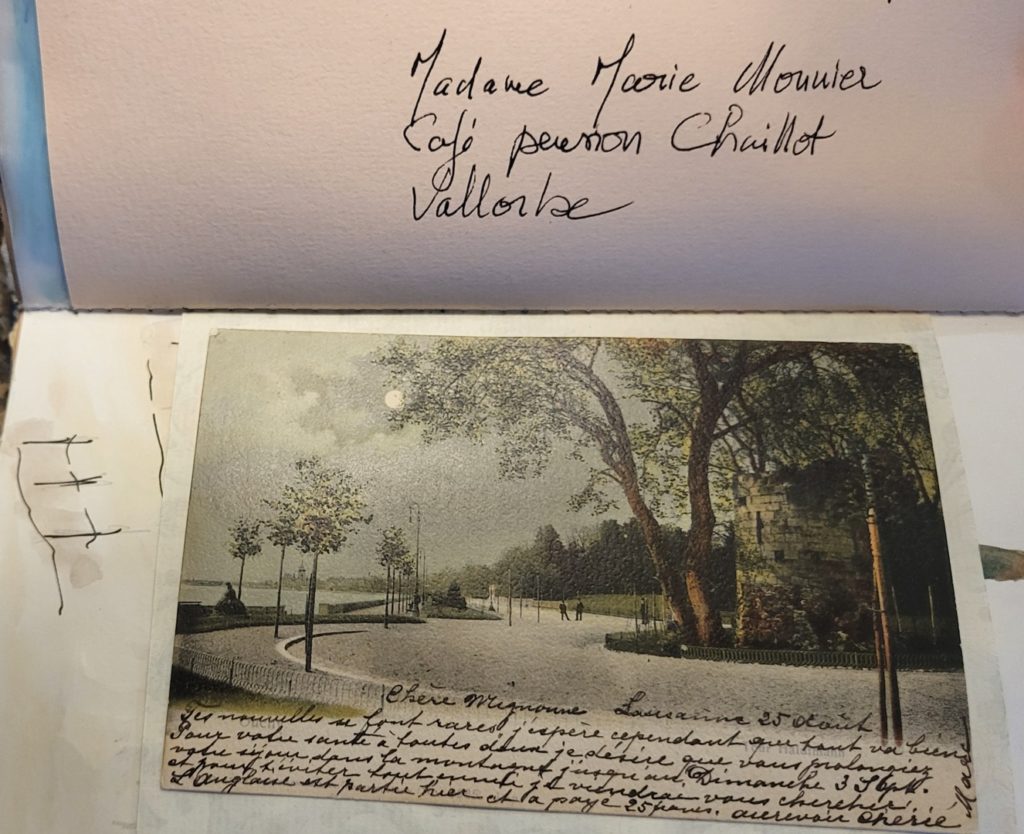 Madame Marie Monnier
Café pension Chaillot
Vallorbe
Chère Mignonne Lausanne 25 Août
Tes nouvelles se font rares, j'espère cependant que tout va bien
Pour votre santé à toutes deux je désire que vous prolongiez
votre séjour dans la montagne jusqu'au Dimanche 3 Sept.
et pour t'éviter tout ennui je viendrai vous chercher.
L'Anglaise est partie hier et a payé 25 francs. aurevoir chérie